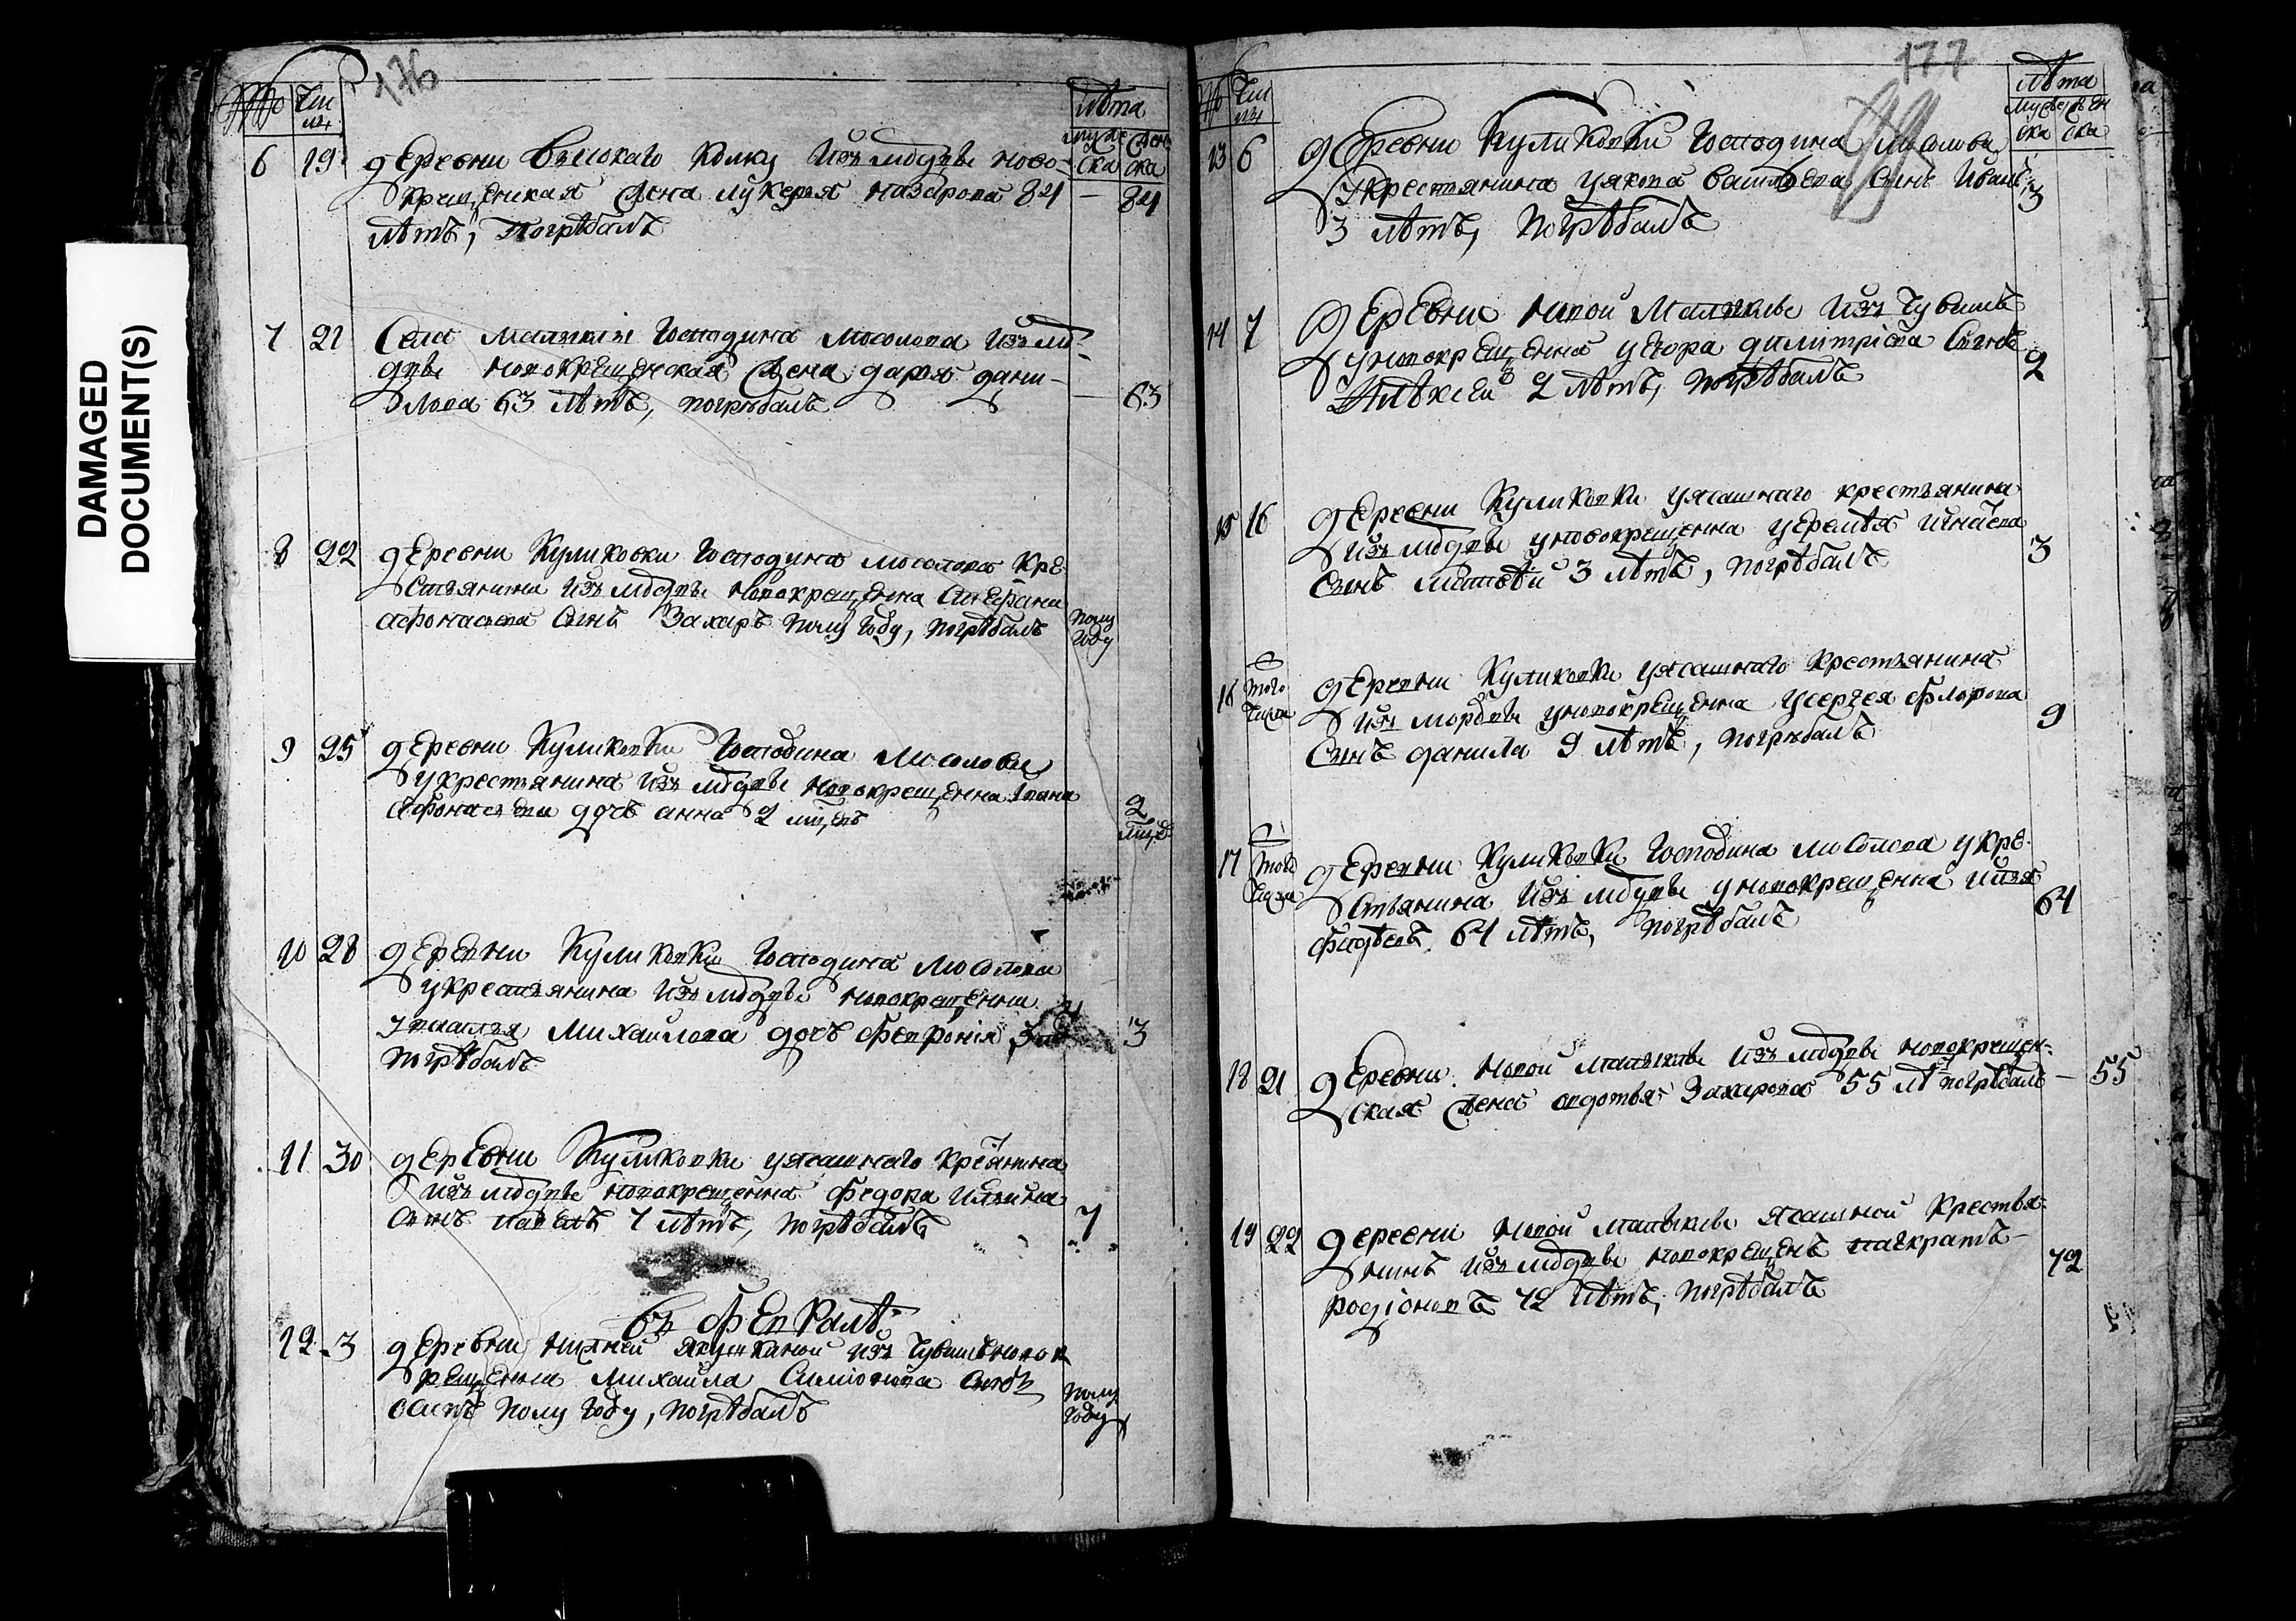 DAMAGED
DOCUMENT(S)
176
№ Чи сла
лѣта
муже ска жен ска
6 19 деревни высокаго колку изъ мордвы ново-
крещенская жена лукерья назарова 84 — 84
лѣтъ, погрѣбанъ
7 21 Села Малыкли господина Мосолова изъ мо-
рдвы новокрещенская жена дарья дани-
лова 63 лѣтъ, погрѣбанъ — 63
8 22 деревни Куликовки господина мосолова кре-
стьянина изъ мордвы новокрещенна Стефана
афонасьева сынъ Захаръ полу году, погрѣбанъ полу году
9 25 деревни Куликовки господина Мосолова
у крестьянина изъ мордвы новокрещенна Ивана
афонасьева дочь анна 2 мцъ 2 мцъ
10 28 деревни Куликовки господина Мосолова
у крестьянина изъ мордвы новокрещенна
Михайлова дочь февронія 3 3
погрѣбанъ
11 30 деревни Куликовки у ясашнаго крестьянина
изъ мордвы новокрещенна федора Ильина
Сынъ павелъ 7 лѣтъ, погрѣбанъ 7
въ февралѣ
12 3 деревни нижней Якушкиной изъ Чувашъ новок
рещенна Михаила Симіонова сынъ
полу году, погрѣбанъ полу году
177
№ Чи сла
лѣта
мужеска женска
13 6 деревни Куликовки господина Мосолова
у крестьянина у якова васильева сынъ Иванъ
3 лѣтъ, погрѣбанъ 3
14 7 деревни новой Малыклы изъ Чувашъ
у новокрещенна у егора димитріева Сынъ
Алѣксей 2 лѣтъ, погрѣбанъ 2
15 16 деревни Куликовки у ясашнаго крестьянина
изъ мордвы у новокрещенна у еремѣя
Сынъ матвѣй 3 лѣтъ, погрѣбанъ 3
16 того числа деревни Куликовки у ясашнаго крестьянина
изъ мордвы у новокрещенна у сергея флорова
Сынъ данила 9 лѣтъ, погрѣбанъ 9
17 того числа деревни Куликовки господина мосолова у кре-
стьянина изъ мордвы у новокрещенна илья
64 лѣтъ, погрѣбанъ 64
18 21 деревни новой малыклы изъ мордвы новокрещен-
ская жена овдотья Захарова 55 лѣ погрѣбанъ — 55
19 22 деревни новой малыклы ясашной крестья-
нинъ изъ мордвы новокрещенъ панкратъ
родіоновъ 72 лѣтъ, погрѣбанъ 72